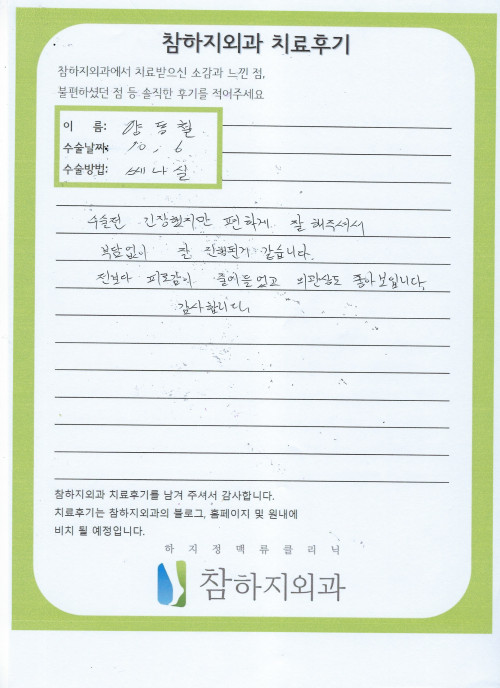 참하지외과 치료후기
참하지외과에서 치료받으신 소감과 느낀 점,
불편하셨던 점 등 솔직한 후기를 적어주세요
이 름: 양 동 철
수술날짜: 10, 6
수술방법: 베 나 실
수술전 긴장했지만 편하게 잘 해주셔서
부담없이 잘 진행된거 같습니다.
전보다 피로감이 줄어들었고 외관상도 좋아보입니다.
감사합니다.
참하지외과 치료후기를 남겨 주셔서 감사합니다.
치료후기는 참하지외과의 블로그, 홈페이지 및 원내에
비치 될 예정입니다.
하지정맥류클리닉
참하지외과